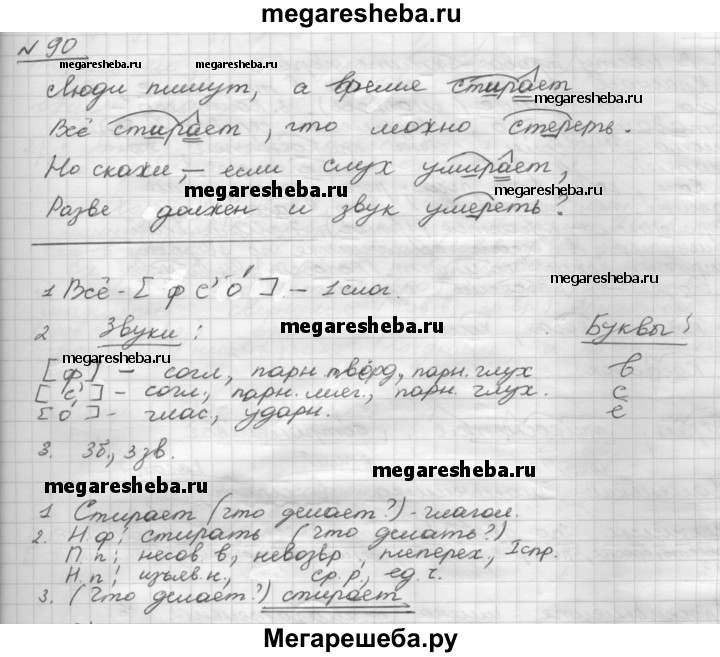 megaresheba.ru
№ 90
megaresheba.ru megaresheba.ru
Люди пишут, а время стирает
megaresheba.ru
Всё стирает, что можно стереть.
Но скажи, – если слух умирает,
megaresheba.ru megaresheba.ru
Разве должен и звук умереть?
megaresheba.ru
1 Всё - [ф с' о́] – 1 слог.
2 Звуки: Буквы:
megaresheba.ru
megaresheba.ru
[ф] – согл, парн. твёрд, парн. глух в
[с'] – согл, парн. мяг., парн. глух. с
[о́] – глас, ударн. ё
3. 3б., 3 зв.
megaresheba.ru megaresheba.ru
1 Стирает (что делает?) - глагол.
2. Н.ф: стирать (что делать?)
П.п: несов в, невозвр, перех, I спр.
Н.п: изъяв.н, ср.р, ед.ч.
3. (Что делает?) стирает
Мегарешеба.ру